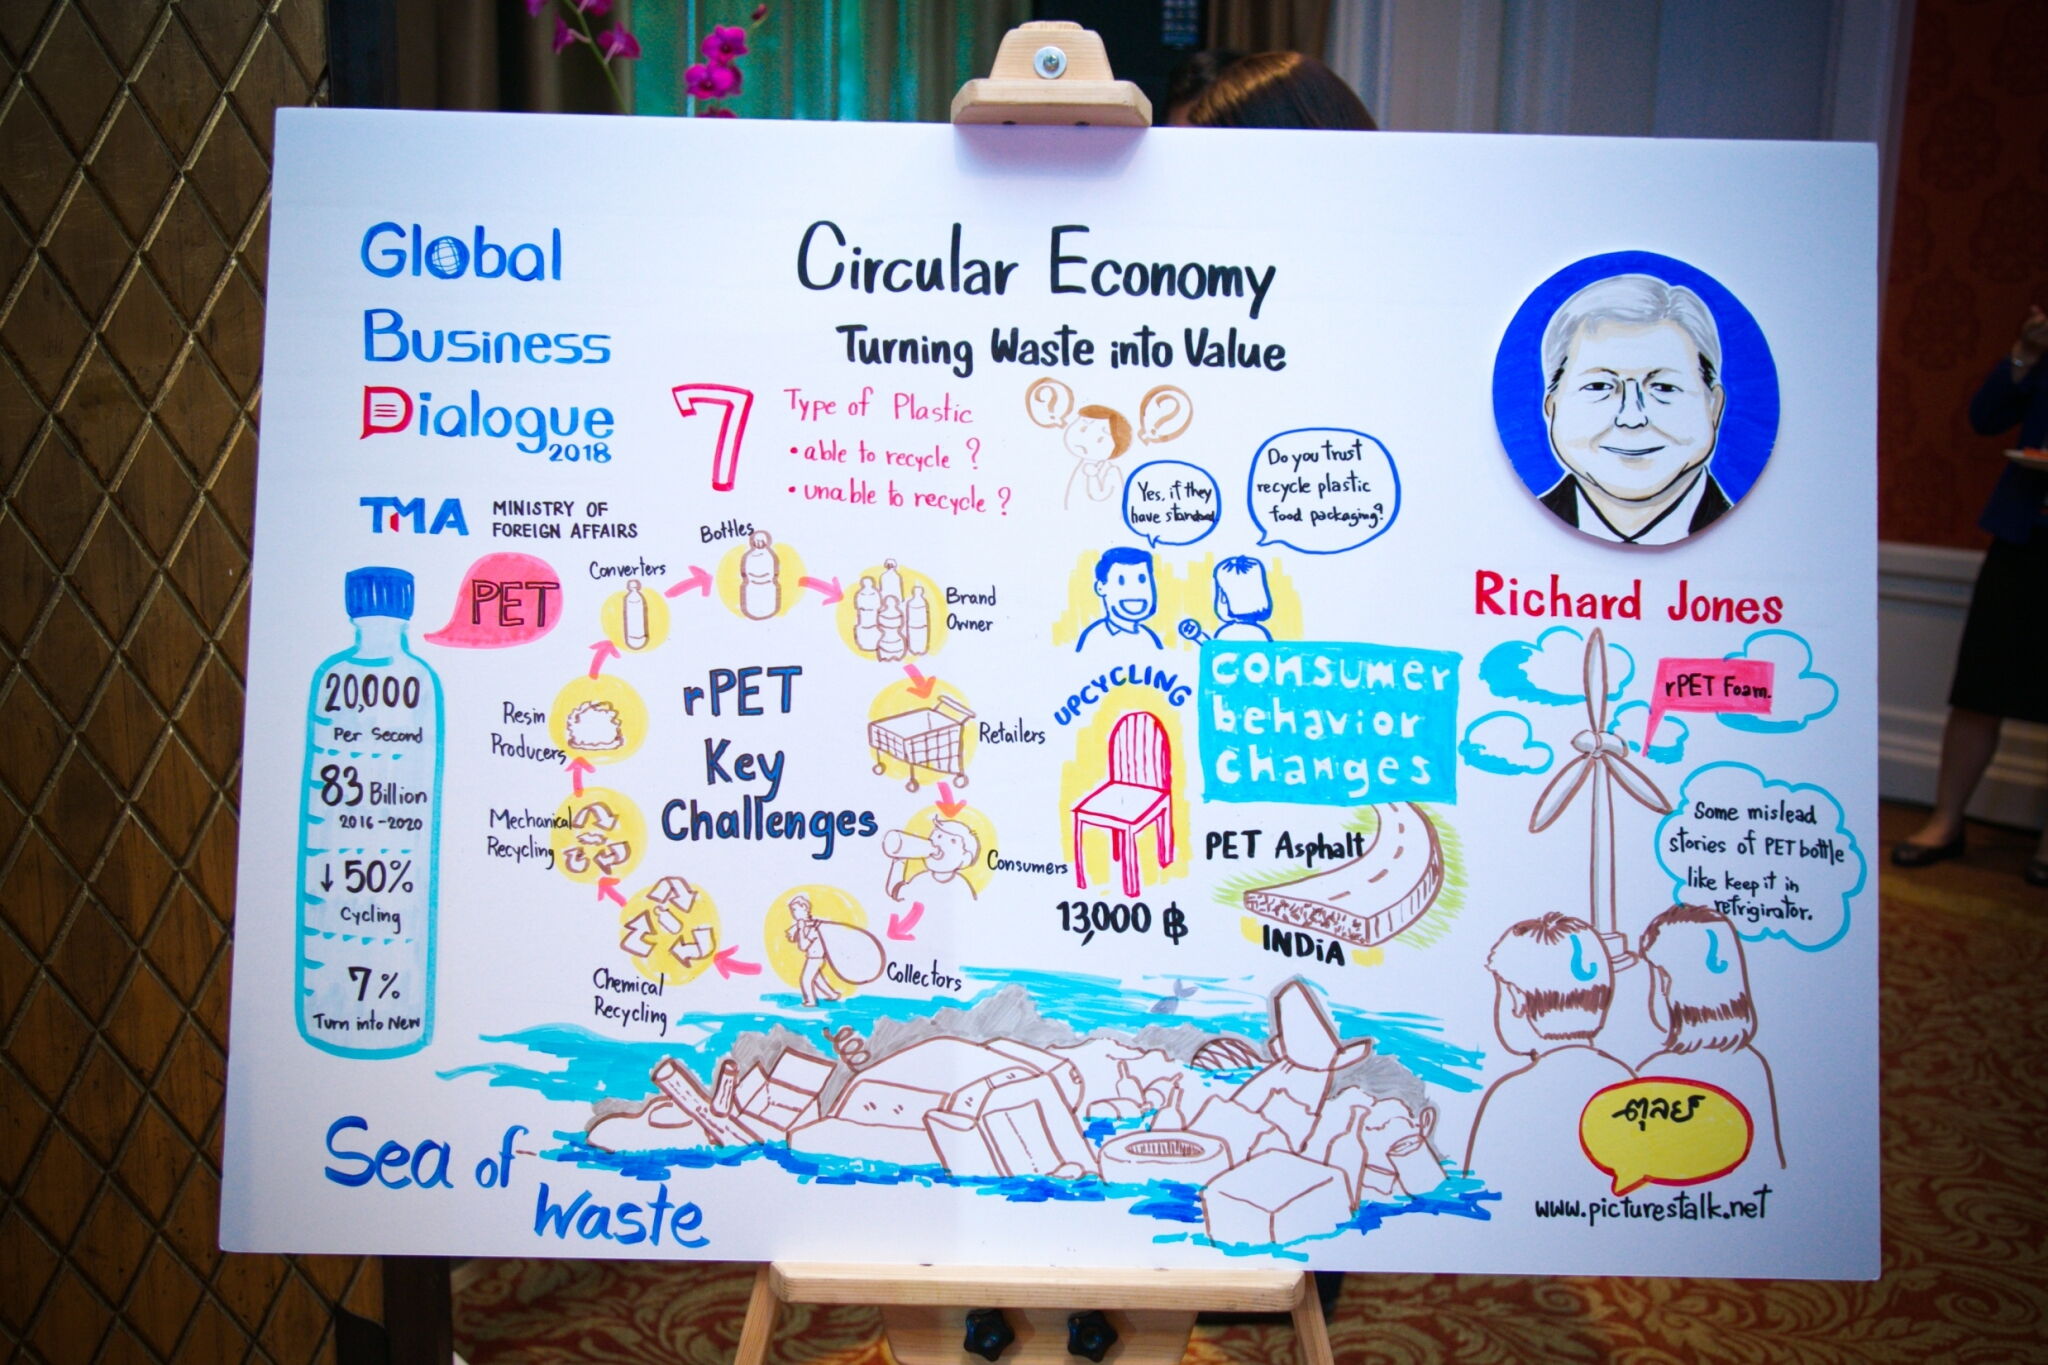 Global
Business
Dialogue
2018
TMA
MINISTRY OF
FOREIGN AFFAIRS
Circular Economy
Turning Waste into Value
7
Type of Plastic
• able to recycle ?
• unable to recycle ?
?
?
Yes, if they
have standard
Do you trust
recycle plastic
food packaging?
Richard Jones
PET
20,000
Per Second
83 Billion
2016-2020
↓50%
Cycling
7%
Turn into New
rPET
Key
Challenges
Converters
Bottles
Brand
Owner
Retailers
Consumers
Collectors
Chemical
Recycling
Mechanical
Recycling
Resin
Producers
UPCYCLING
13,000 ฿
consumer
behavior
changes
PET Asphalt
INDiA
rPET Foam.
Some mislead
stories of PET bottle
like keep it in
refrigirator.
Sea of
Waste
ตุลย์
www.picturestalk.net